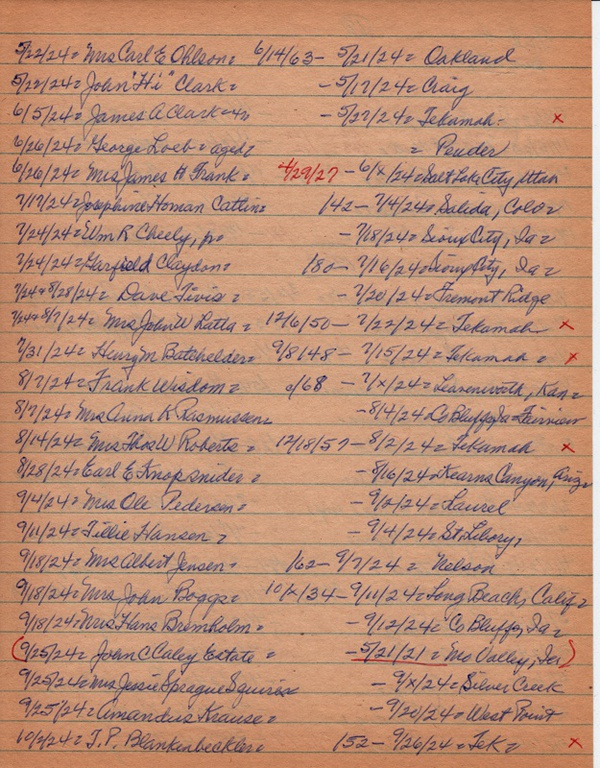 5/22/24 = Mrs Carl E Ohlson = 6/14/63 - 5/21/24 = Oakland
5/22/24 = John "Hi" Clark = - 5/17/24 = Craig
6/5/24 = James A Clark = - 5/27/24 = Tekamah = x
6/26/24 = George Loeb = aged = = Pender
6/26/24 = Mrs James H Frank = 4/29/27 - 6/x/24 = Salt Lake City, Utah
7/17/24 = Josephine Homan Catlin = 142 - 7/4/24 = Salida, Colo =
7/24/24 = Wm R Cheely, jr = - 7/18/24 = Sioux City, Ia =
7/24/24 = Garfield Claydon = 180 - 7/16/24 = Sioux City, Ia =
7/24 & 8/28/24 = Dave Tivis = - 7/20/24 = Fremont Ridge
7/24 & 8/7/24 = Mrs John W Latta = 12/6/50 - 7/22/24 = Tekamah x
7/31/24 = Henry M Batchelder = 9/8/48 - 7/15/24 = Tekamah = x
8/7/24 = Frank Wisdom = c/68 - 7/x/24 = Leavenworth, Kan =
8/7/24 = Mrs Anna K Rasmussen = - 8/4/24 = Co Bluffs Ia = Fairview
8/14/24 = Mrs Thos W Roberts = 12/18/57 - 8/2/24 = Tekamah x
8/28/24 = Earl E Knopsnider = - 8/16/24 = Kearns Canyon, Ariz =
9/4/24 = Mrs Ole Pedersen = - 9/2/24 = Laurel
9/11/24 = Tillie Hansen = - 9/4/24 = St. Libory,
9/18/24 = Mrs Albert Jensen = 162 - 9/7/24 = Nelson
9/18/24 = Mrs John Boggs = 10/x/34 - 9/11/24 = Long Beach, Calif =
9/18/24 = Mrs Hans Bremholm = - 9/12/24 = Co Bluffs, Ia =
(9/25/24 = John C Caley Estate = - 5/21/21 = Mo Valley, Ia =)
9/25/24 = Mrs Jessie Sprague Squires = - 9/x/24 = Silver Creek
9/25/24 = Amandus Krause = - 9/20/24 = West Point
10/2/24 = T. P. Blankenbeckler = 152 - 9/26/24 = Tek = x